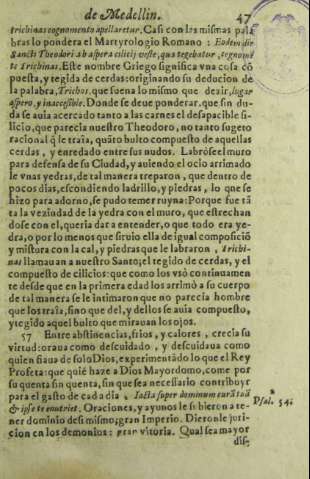 de Medellin. 47
trichinas cognomento apellaretur. Casi con las mismas pala
bras lo pondera el Martyrologio Romano : Eodem die
Sancti Theodori. ab aspera cilicij veste, qua tegebatur, cognomē
to Trichinas. Este nombre Griego significa vna cosa cō
puesta, y tegida de cerdas: originando su deducion de
la palabra, Trichos. que suena lo mismo que dezir, lugar
aspero, y inaccessible. Donde se deue ponderar. que sin du-
da se auia acercado tanto a las carnes el desapacible si-
licio, que parecia nuestro Theodoro, no tanto sugeto
racional q̃ le traìa, quāto bulto compuesto de aquellas
cerdas, y enredado entre sus nudos. Labròse el muro
para defensa de su Ciudad, y auiendo el ocio arrimado
le vnas yedras, de tal manera treparon, que dentro de
pocos dias, escondiendo ladrillo, y piedras, lo que se
hizo para adorno, se pudo temer ruyna: Porque fue tā
ta la vezindad de la yedra con el muro, que estrechan
dose con el, queria dar a entender, o que todo era ye-
dra, o por lo menos que situio ella de igual composiciō
y mistura con la cal, y piedras que le labraron, Trichi-
nas llamauan a nuestro Santo; el tegido de cerdas, y el
compuesto de cilicios: que como los vsò continuamen
te desde que en la primera edad los arrimò a su cuerpo
de tal manera se le intimaron que no parecia hombre
que los traìa, sino que del, y dellos se auia compuesto,
y tegido aquel bulto que mirauan los ojos.
57 Entre abstinencias, frios, y calores, crecia su
virtud: oraua como descuidado, y descuidaua como
quien fiaua de solo Dios, experimentādo lo que el Rey
Profeta: que quiē haze a Dios Mayordomo, come por
su quenta sin quenta, sin que sea necessario contribuyr
para el gasto de cada dia. Iacta super dominum curā tuā
& ipse te enutriet. Oraciones, y ayunos le subieron a te-
Psal. 54.
ner dominio de si mismo; gran Imperio. Dieronle juri-
cion en los demonios: gran vitoria. Qual sea mayor
dis-